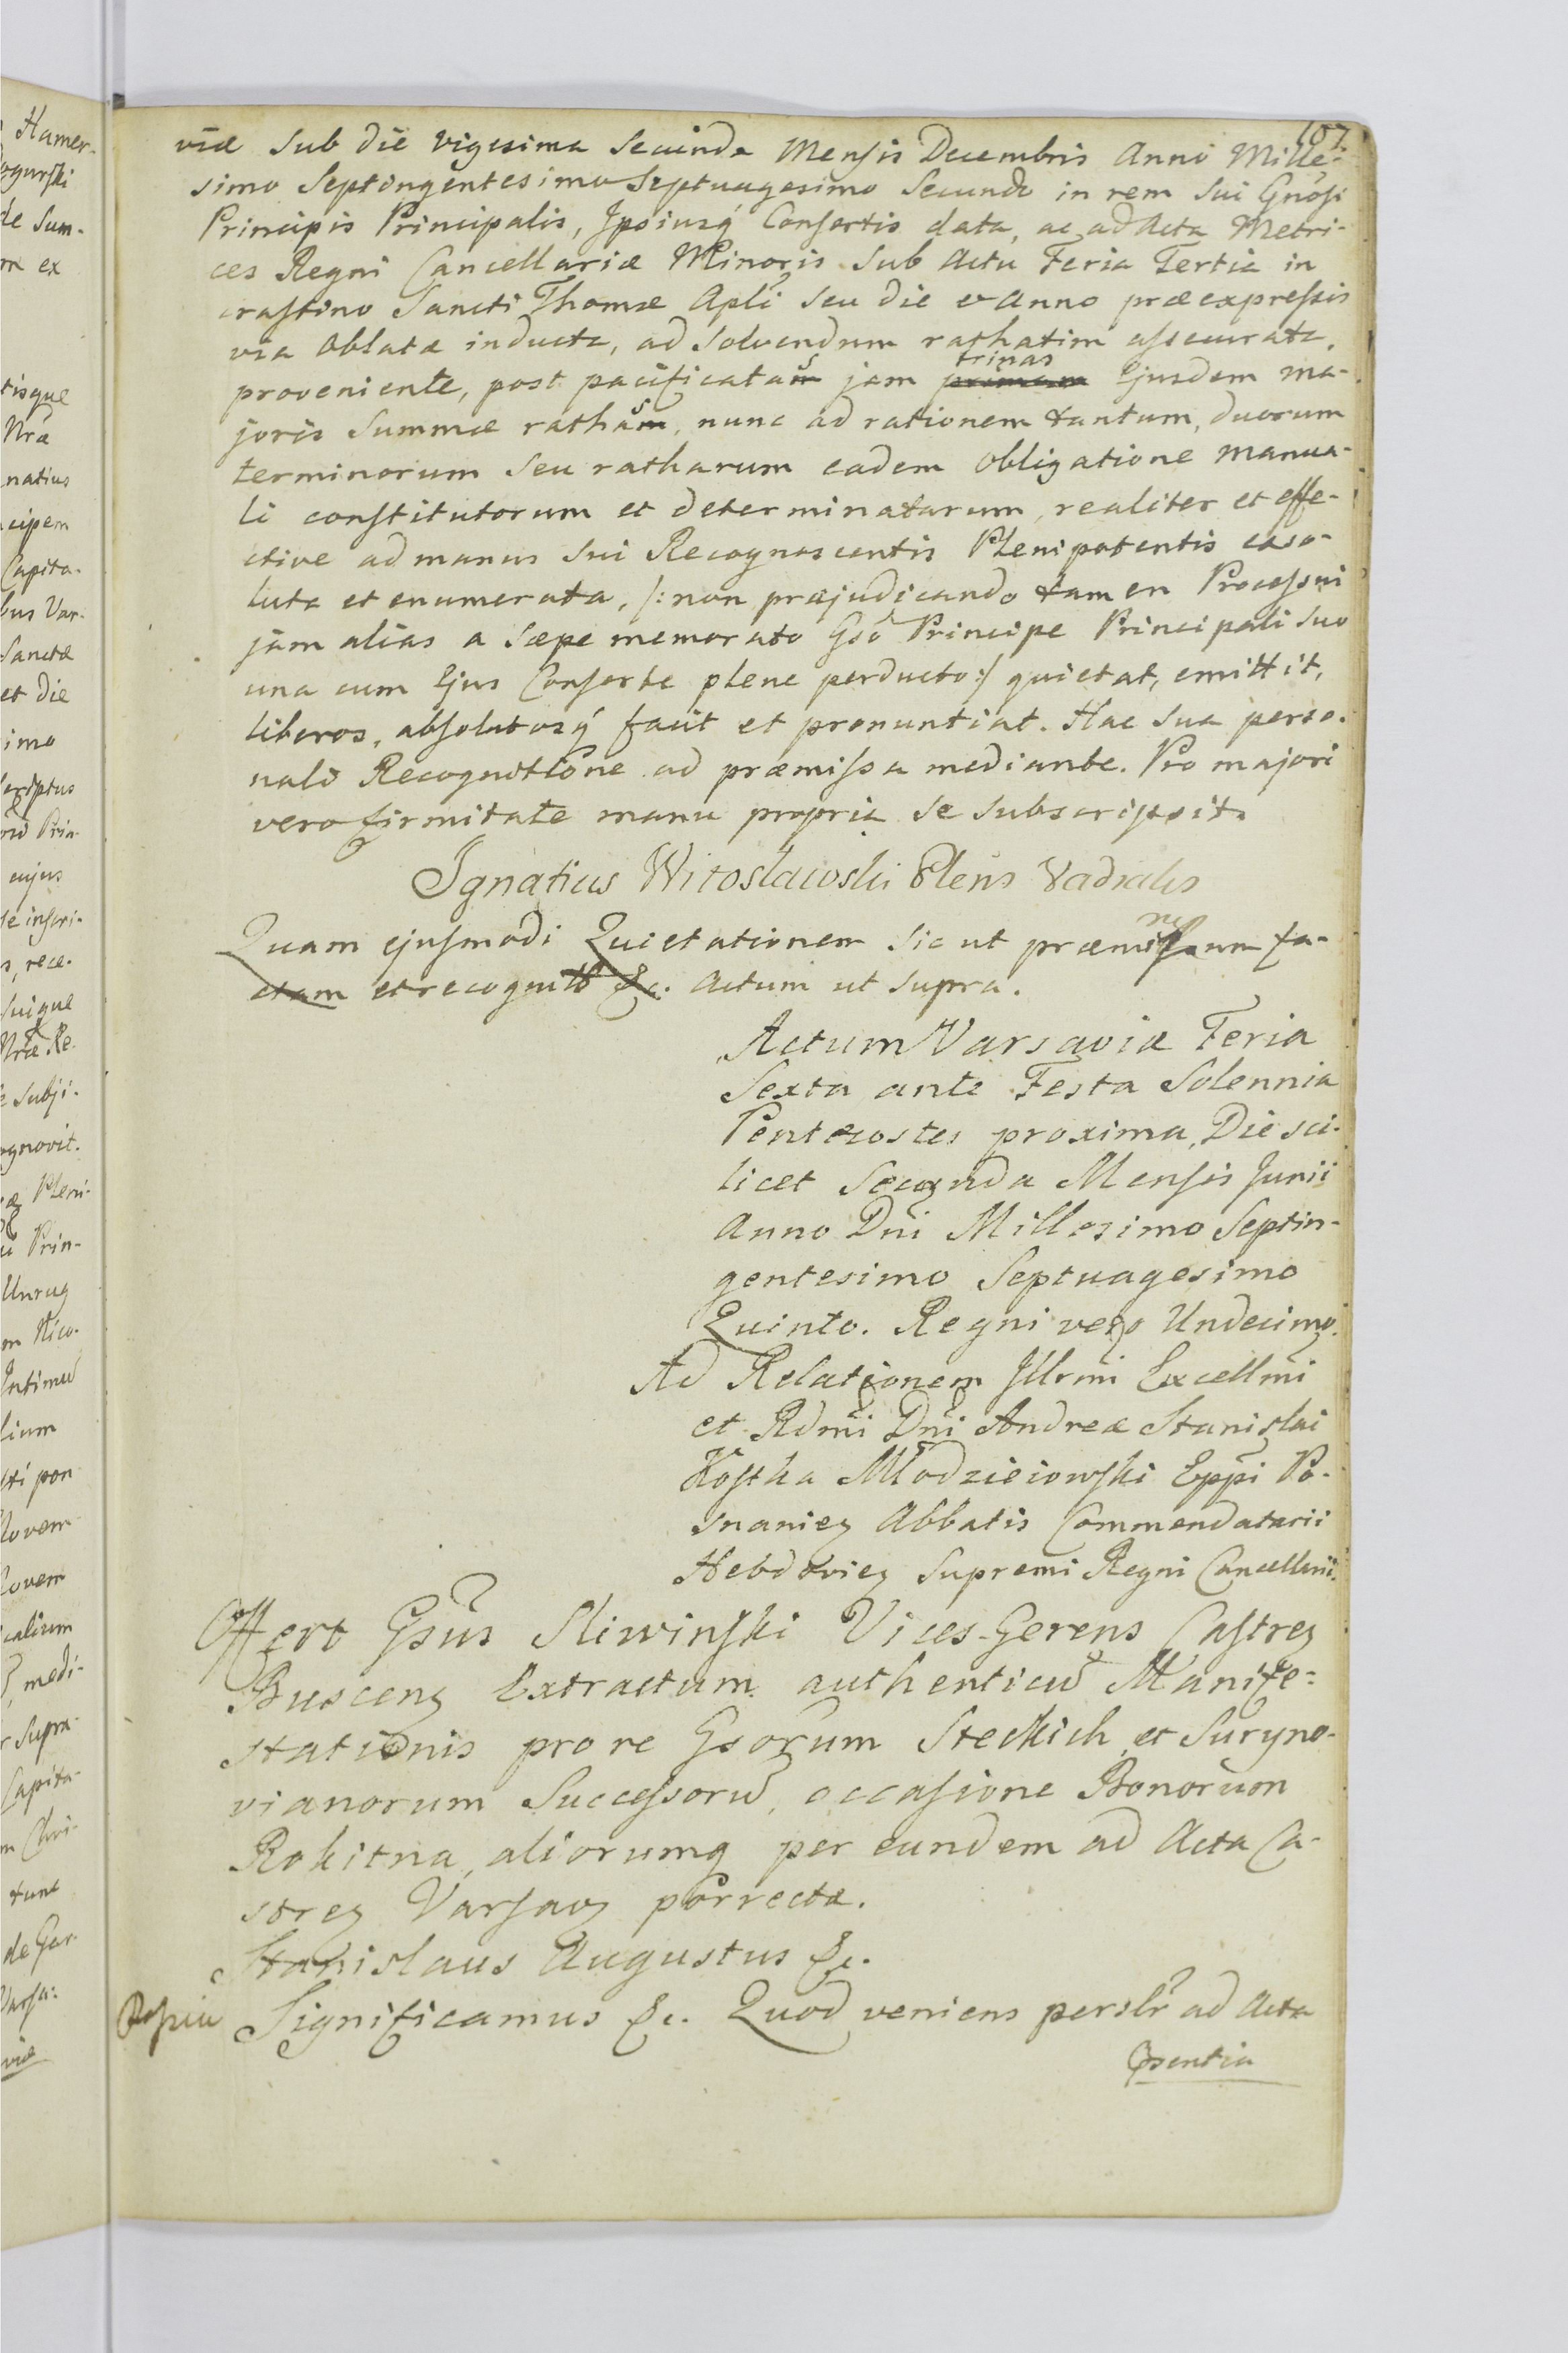 107
viæ sub die vigesima secunda Mensis Decembris Anno Mille-
simo Septingentesimo Septuagesimo Secundo in rem sui Gnosi
Principis Principalis, Ipsiusq́ Consortis data, ac ad Acta Metri-
ces Regni Cancellariæ Minoris sub Actu Feria Tertia in
crastino Sancti Thomæ Apli seu die et Anno præexpressis
via Oblatæ inducta, ad solvendum rathatim assecurata,
proveniente, post pacificatas jam trinas Ejusdem ma-
joris Summæ rathas, nunc ad rationem tantum, duorum
terminorum seu ratharum eadem Obligatione manua-
li constitutorum et determinatarum, realiter et effe-
ctive ad manus sui Recognoscentis Plenipotentis exso-
luta et enumerata, /: non præjudicando tamen Processui
jam alias a sæpe memorato Gso Principe Principali suo
una cum Ejus Consorte plene perducto :/ quietat, emittit,
liberos, absolutosq́ facit et pronuntiat. Hac sua perso-
nali Recognitione ad præmissa mediante. Pro majori
vero firmitate manu propria se subscripsit.
Ignatius Witoslawski Plens Vadialis
Quam ejusmodi Quietationem sic ut præmissum fa-
ctam et recognitt &c. Actum ut supra.
Actum Varsaviæ Feria
Sexta ante Festa Solennia
Pentecostes proxima, Die sci-
licet Secunda Mensis Junii
Anno Dni Millesimo Septin-
gentesimo Septuagesimo
Quinto. Regni vero Undecimo.
Ad Relationem Illrmi Excellmi
et Rdmi Dni Andreæ Stanislai
Kostka Młodzieiowski Eppi Po-
snaniez Abbatis Commendatarii
Hebdoviez Supremi Regni Cancellarii.
Offert Gsus Sliwinski Vices-Gerens Castrez
Buscenz Extractum authenticu Manife-
stationis pro re Gsorum Steckich et Suryno-
vianorum Successoru, occasione Bonorum
Rokitna, aliorumq per eundem ad Acta Ca-
strez Varsavz porrectæ.
Stanislaus Augustus &c.
Significamus &c. Quod veniens perslr ad Acta
Psentia